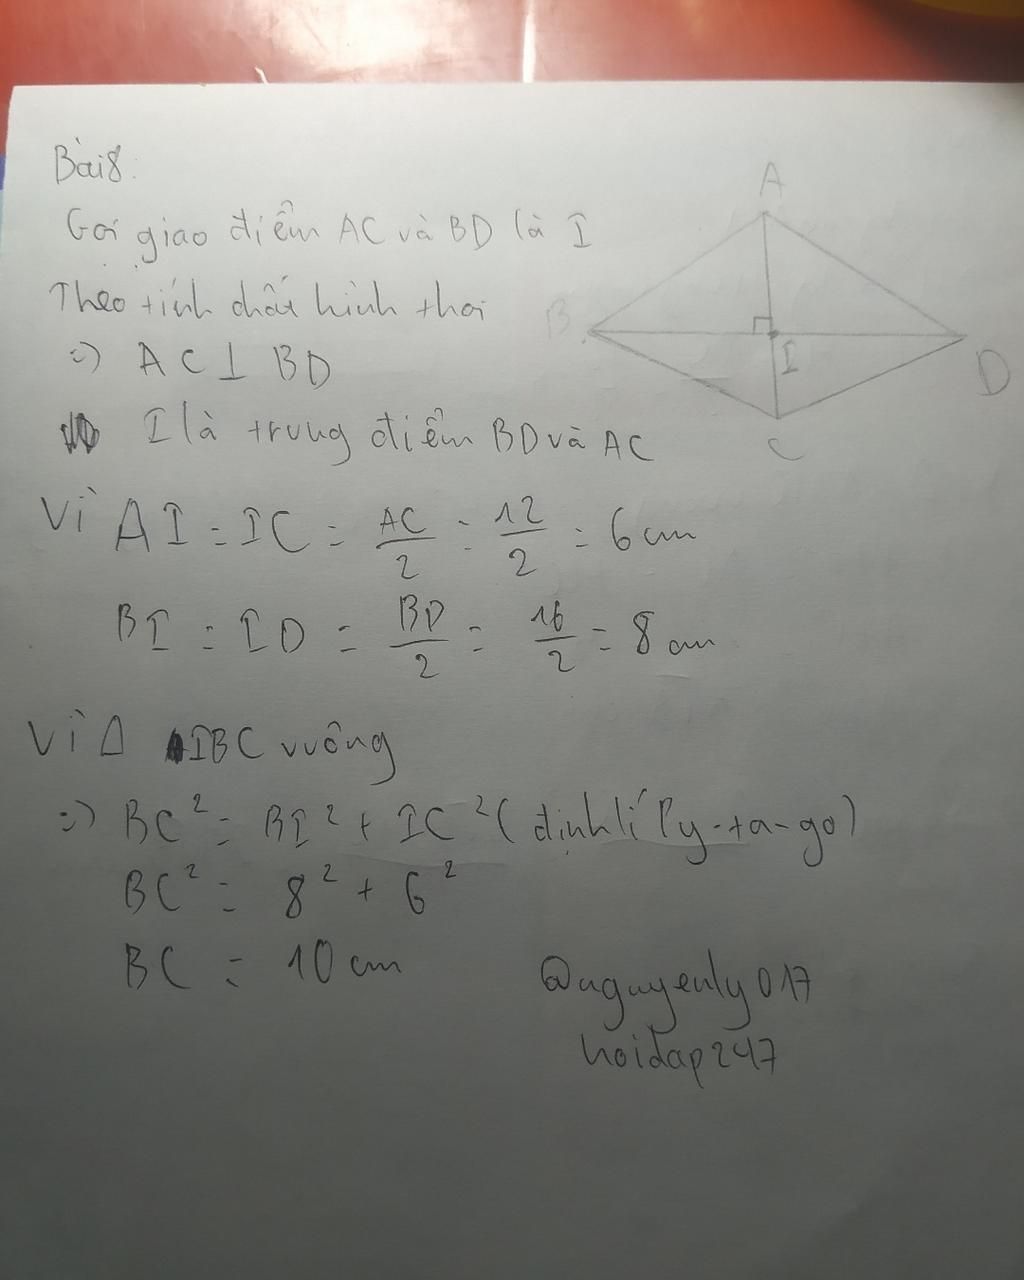 Bài 8:
Gọi giao điểm AC và BD là I
Theo tính chất hình thoi
=) AC ⊥ BD
I là trung điểm BD và AC
Vì AI = IC = AC/2 = 12/2 = 6 cm
BI = ID = BD/2 = 16/2 = 8 cm
Vì Δ IBC vuông
=) BC² = BI² + IC² (định lí Py-ta-go)
BC² = 8² + 6²
BC = 10 cm
@nguyenly017
hoidap247
A
B
I
D
C